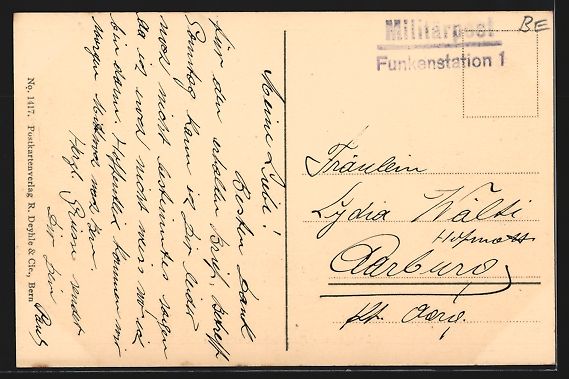 Meine Liebe!
Besten Dank
für den erhalten Brief. Betreff
Sonntag kann ich Dir leider
noch nicht bestimmtes sagen
da ich noch nicht weis wo ich
bin dann. Hoffentlich kommen wir
Morgen Mittwoch nach Bern.
Herzl. Grüsse sendet
Dir Dein
Paul
No. 1417. Postkartenverlag R. Deyhle & Cie., Bern
Militärpost
Funkenstation 1
BE
Fräulein
Lydia Wälti
Hofmatt
Aarburg
Kt. Aarg.